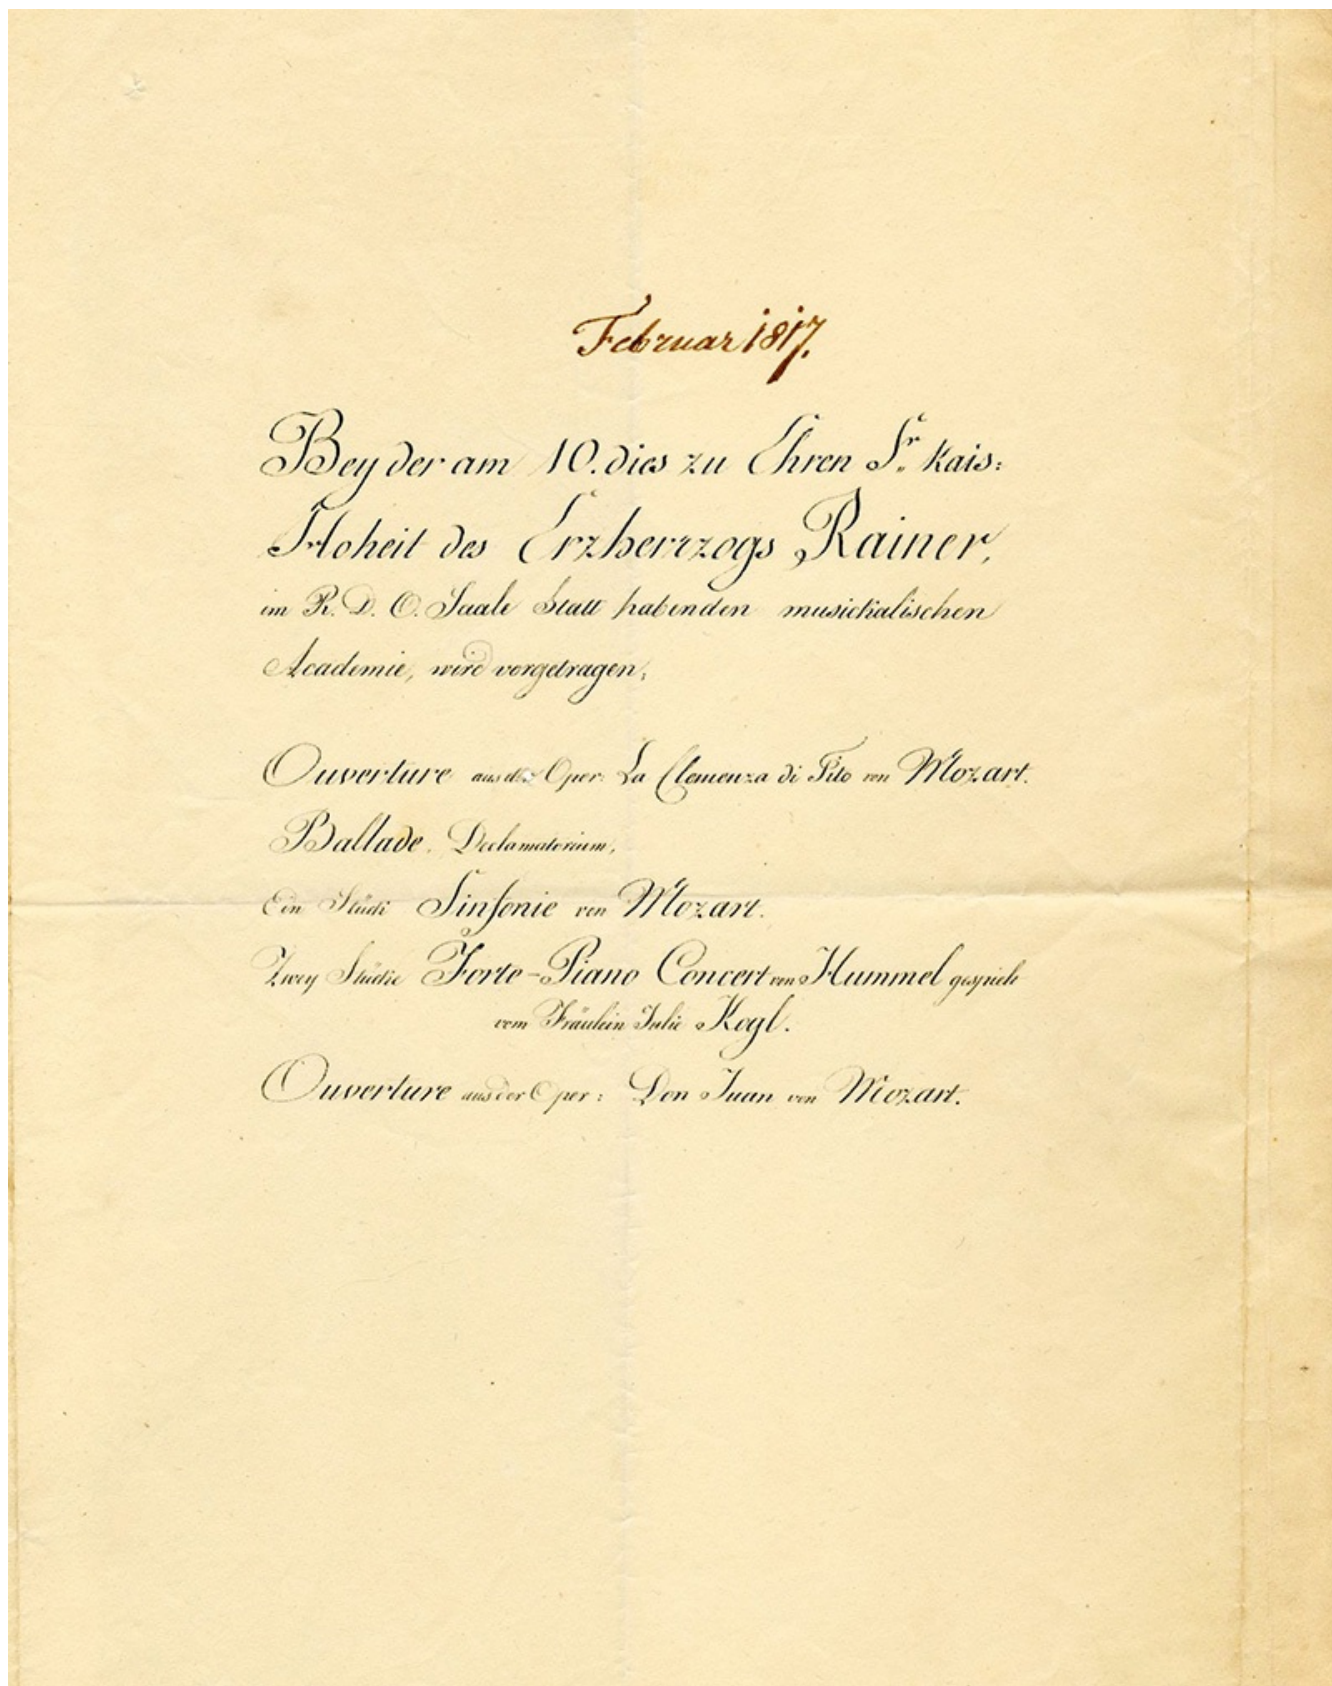 Februar 1817.
Bey der am 10. dies zu Ehren Sr. kais:
Hoheit des Erzherzogs Rainer,
im R. D. O. Saale Statt habenden musickalischen
Academie, wird vorgetragen;
Ouverture aus der Oper: La Clemenza di Tito von Mozart.
Ballade. Declamatorium,
Ein Stück Sinfonie von Mozart.
Zwey Stücke Forte-Piano Concert von Hummel gespielt
vom Fräulein Julie Kogl.
Ouverture aus der Oper: Don Juan von Mozart.